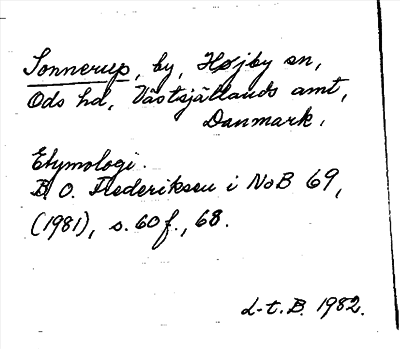 Sonnerup, by, Højby sn,
Ods hd, Västsjällands amt,
Danmark.
Etymologi.
B. O. Frederiksen i NoB 69,
(1981), s. 60 f., 68.
L-t. B. 1982.